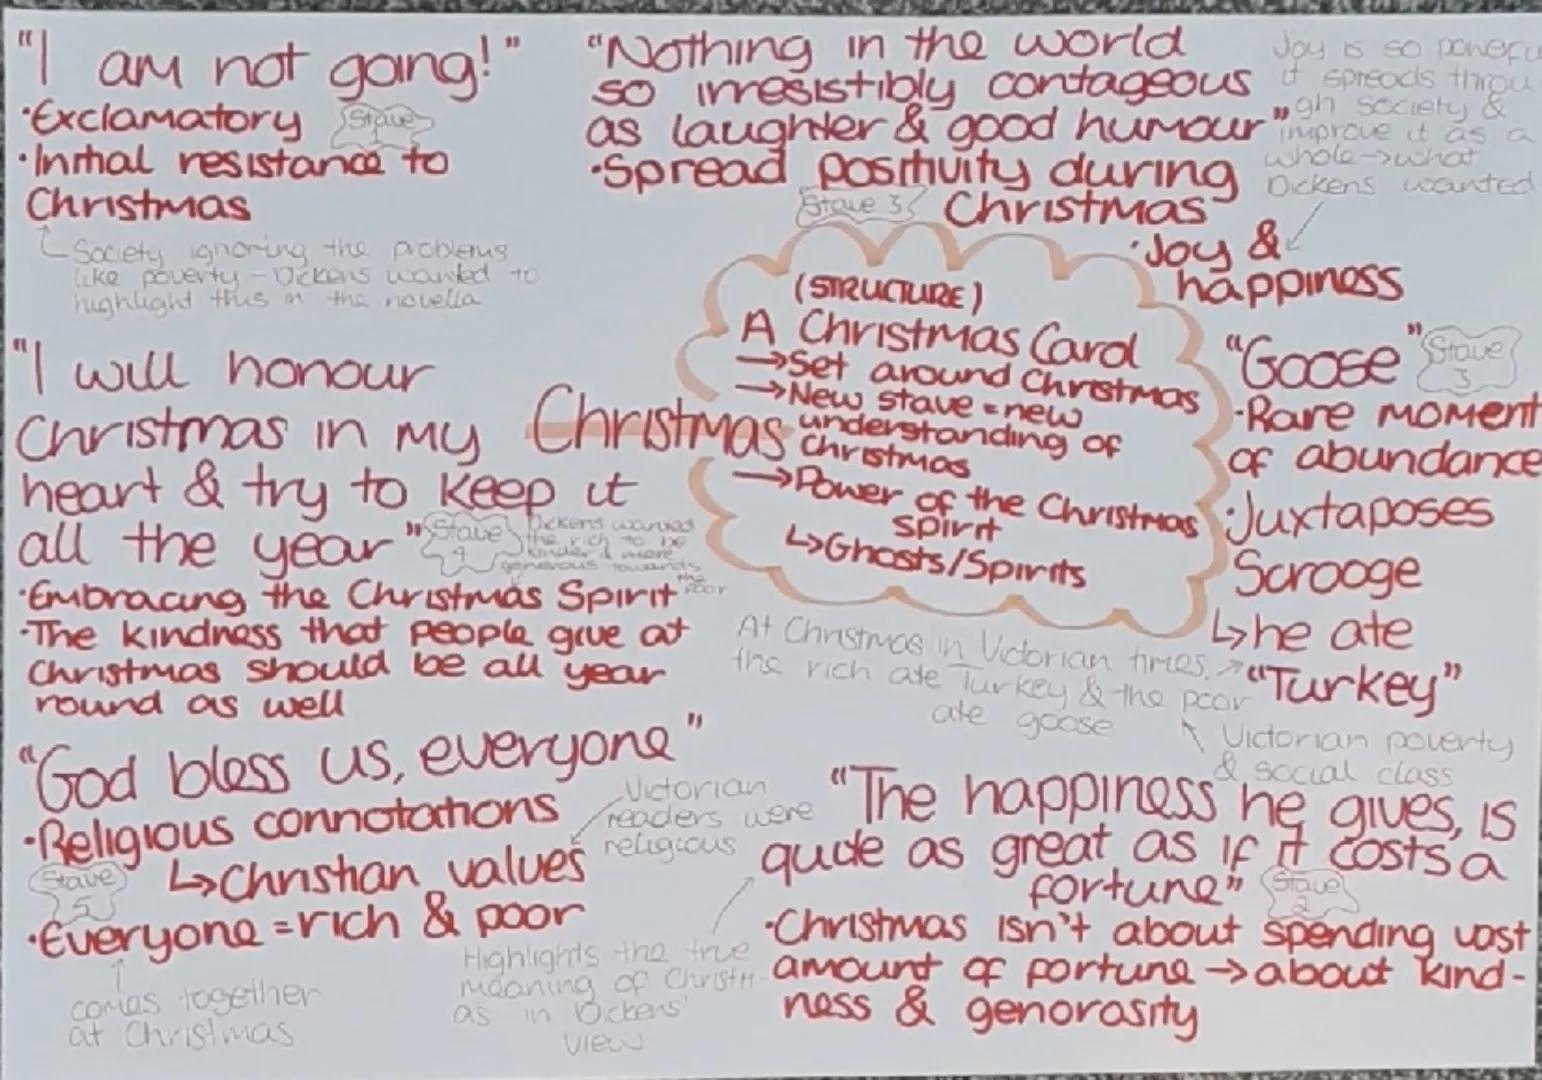 "I am not going!"
•Exclamatory
Stave
1
•Initial resistance to
Christmas
Society ignoring the problems
like poverty – Dickens wanted to
highlight this in the novella
"Nothing in the world
so irresistibly contageous
as laughter & good humour"
•Spread positivity during
Christmas
Stave 3
•Joy &
happiness
Joy is so powerfu
it spreads throu
gh society &
improve it as a
whole→what
Dickens wanted
(STRUCTURE)
A Christmas Carol
→Set around Christmas
→New stave = new
understanding of
Christmas
→Power of the Christmas
spirit
↳Ghosts/Spirits
Christmas
"I will honour
Christmas in my
heart & try to keep it
all the year"
Stave
4
Dickens wanted
the rich to be
kinder & more
generous towards
the
poor
•Embracing the Christmas Spirit
•The kindness that people give at
Christmas should be all year
round as well
"Goose"
Stave
3
•Rare moment
of abundance
•Juxtaposes
Scrooge
↳he ate
"Turkey"
At Christmas in Victorian times,
the rich ate Turkey & the poor
ate goose
Victorian poverty
& social class
"God bless us, everyone"
•Religious connotations
↳Christian values
Victorian
readers were
religious
Stave
5
•Everyone = rich & poor
comes together
at Christmas
"The happiness he gives, is
quite as great as if it costs a
fortune"
Stave
2
•Christmas isn't about spending vast
amount of fortune → about kind-
ness & genorosity
Highlights the true
meaning of Christm-
as in Dickens'
view